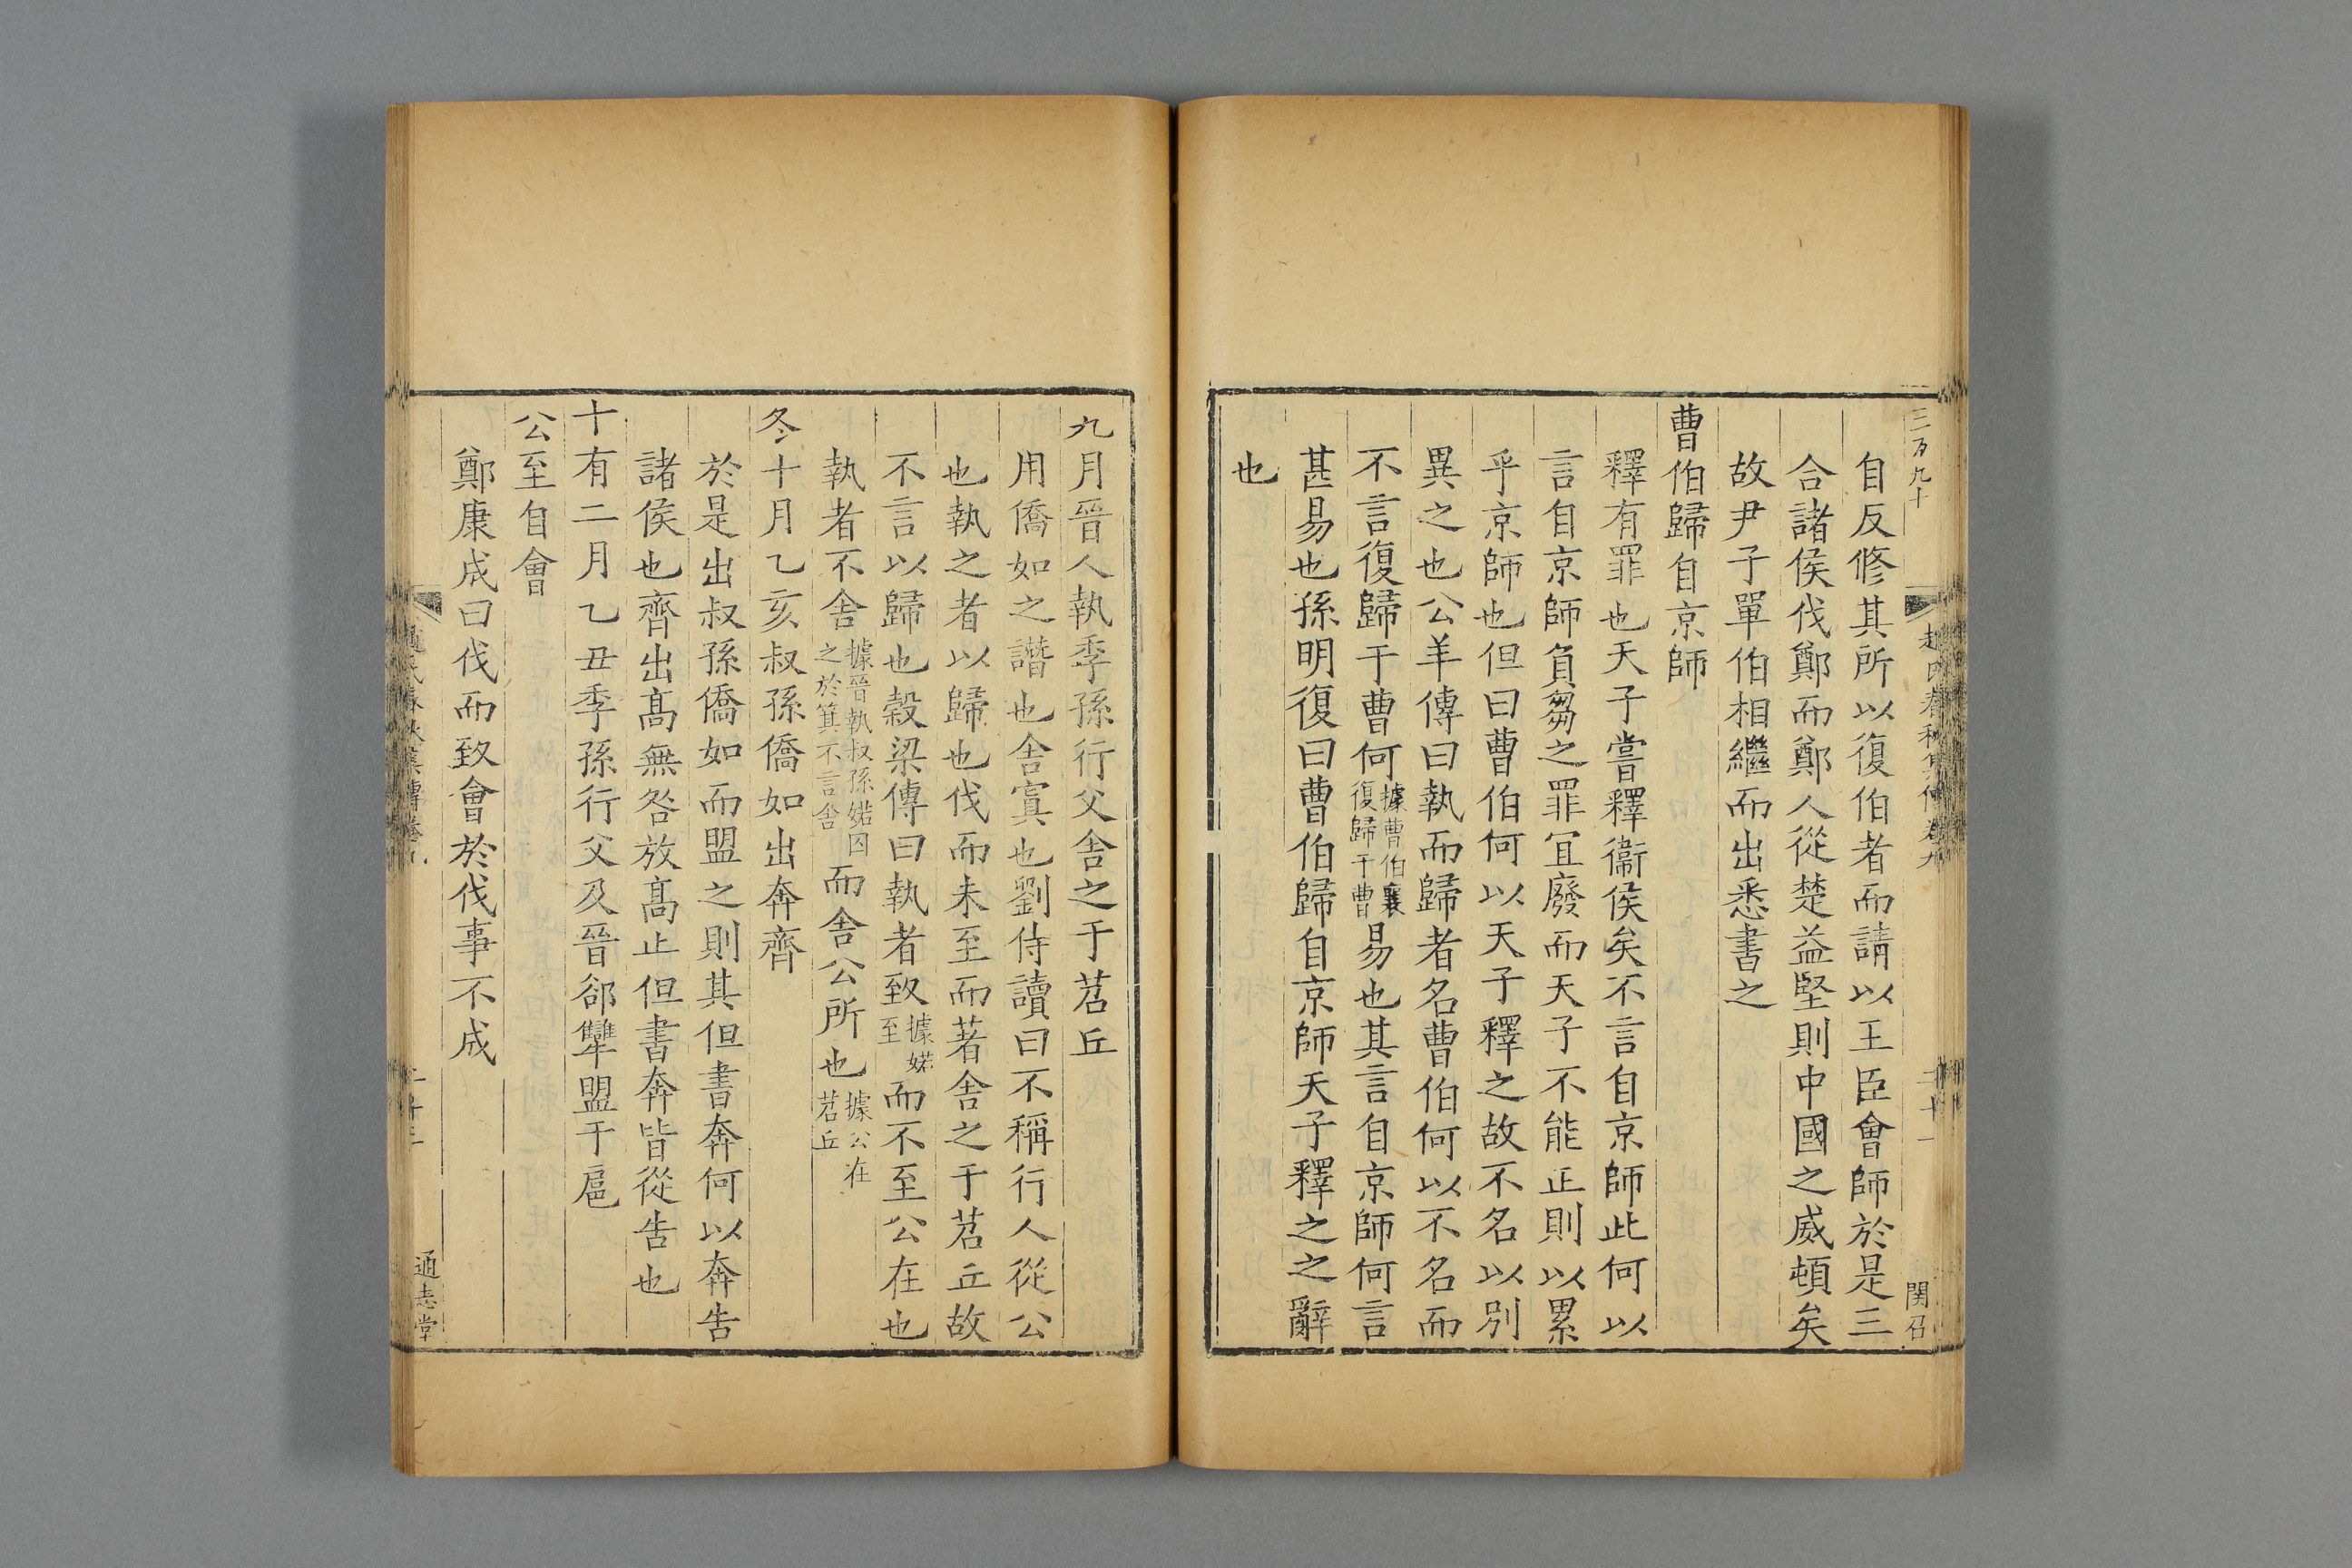 三百九十
趙氏春秋集傳卷九
二十一
関召
自反修其所以復伯者而請以王臣會師於是三
合諸侯伐鄭而鄭人從楚益堅則中國之威頓矣
故尹子單伯相繼而出悉書之
曹伯歸自京師
釋有罪也天子嘗釋衞侯矣不言自京師此何以
言自京師負芻之罪宜廢而天子不能正則以累
乎京師也但曰曹伯何以天子釋之故不名以別
異之也公羊傳曰執而歸者名曹伯何以不名而
不言復歸于曹何據曹伯襄復歸于曹易也其言自京師何言
甚易也孫明復曰曹伯歸自京師天子釋之之辭
也
九月晉人執季孫行父舎之于苕丘
用僑如之譖也舎寘也劉侍讀曰不稱行人從公
也執之者以歸也伐而未至而著舎之于苕丘故
不言以歸也穀梁傳曰執者致據婼至而不至公在也
執者不舎據晉執叔孫婼囚之於箕不言舎而舎公所也據公在苕丘
冬十月乙亥叔孫僑如出奔齊
於是出叔孫僑如而盟之則其但書奔何以奔告
諸侯也齊出髙無咎放髙止但書奔皆從告也
十有二月乙丑季孫行父及晉郤犫盟于扈
公至自會
鄭康成曰伐而致會於伐事不成
通志堂